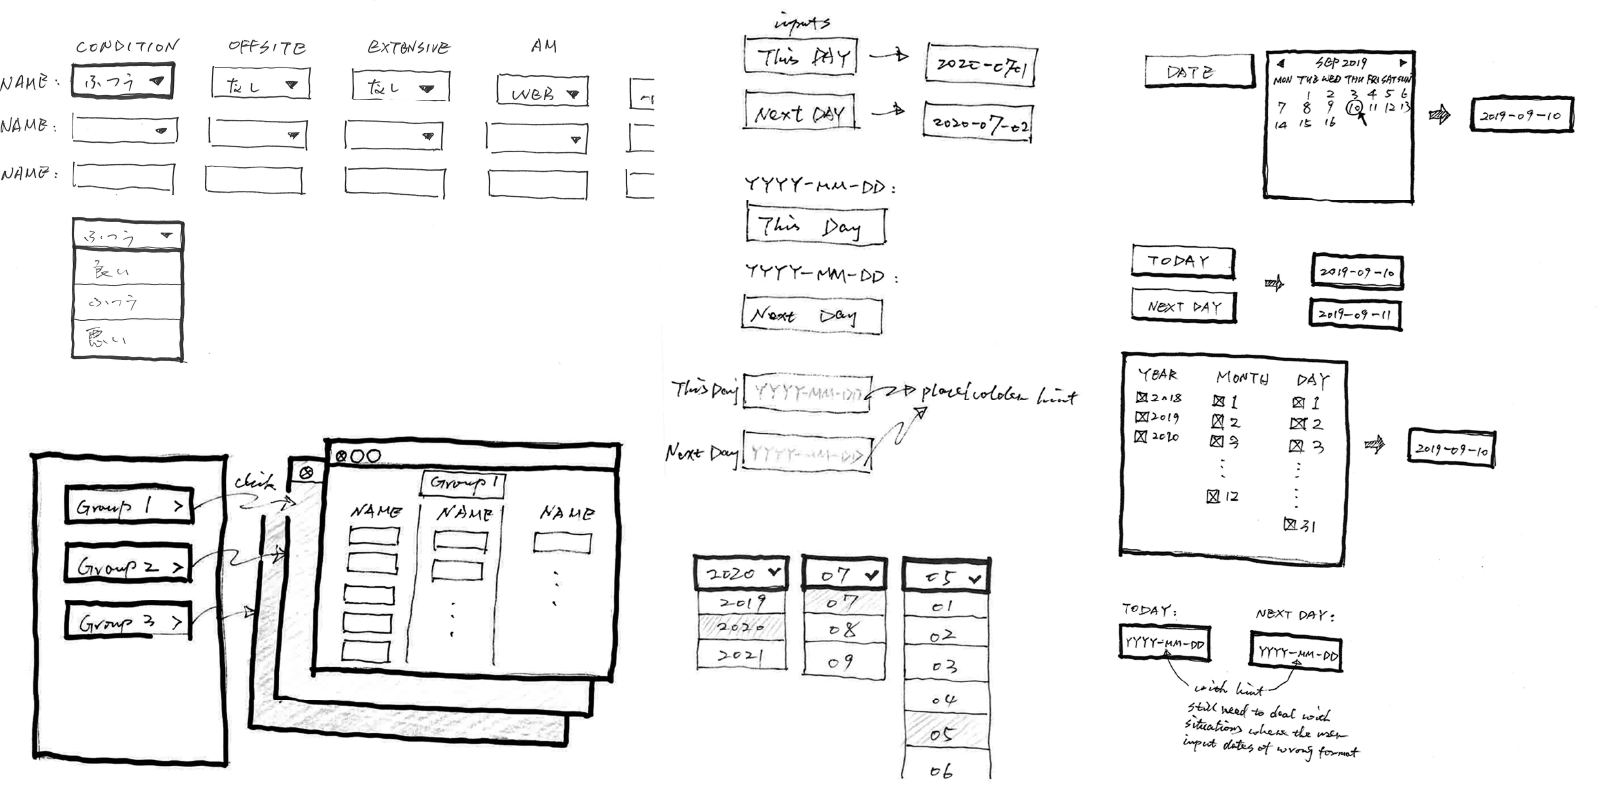 CONDITION OFFSITE EXTENSIVE AM
NAME: ふつう なし なし WEB
NAME:
NAME:
ふつう
良い
ふつう
悪い
Group 1 >
Group 2 >
Group 3 >
click
Group 1
NAME NAME NAME
inputs
This DAY 2020-07-01
Next DAY 2020-07-02
YYYY-MM-DD:
This Day
YYYY-MM-DD:
Next Day
This Day YYYY-MM-DD placeholder hint
Next Day YYYY-MM-DD
2020 07 05
2019 07 01
2020 08 02
2021 09 03
04
05
06
DATE
SEP 2019
MON TUE WED THU FRI SAT SUN
1 2 3 4 5 6
7 8 9 10 11 12 13
14 15 16
2019-09-10
TODAY 2019-09-10
NEXT DAY 2019-09-11
YEAR MONTH DAY
2018 1 1
2019 2 2
2020 3 3
12
31
2019-09-10
TODAY: NEXT DAY:
YYYY-MM-DD YYYY-MM-DD
with hint
still need to deal with
situations where the user
input dates of wrong format